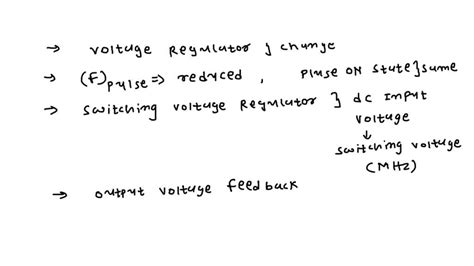 → voltage Regulator } change
→ (F)pulse => reduced, Pluse ON State } same
→ Switching voltage Regulator } dc Input
voltage
↓
Switching voltage
(MHz)
→ output voltage feedback